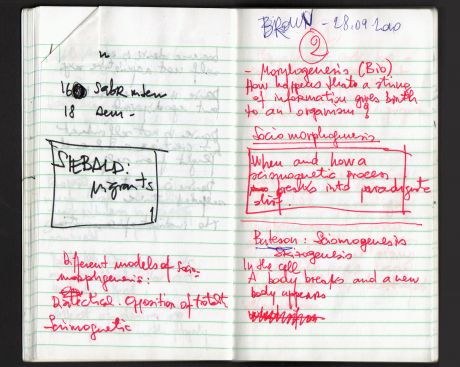 16 Sabr
18 Dem -
SEBALD:
Migrants
Different models of Socio-
morphgenesis:
Dialectical. Opposition of
Seismogretic
BROWN - 28.09.2010
2
- Morphogenesis (Bio)
How happens that a string
of information gives birth
to an organism?
Sociomorphogenesis
When and how a
seismogretic process
breaks into
Bateson: Sismogenesis
In the cell
A body breaks and a new
body appears